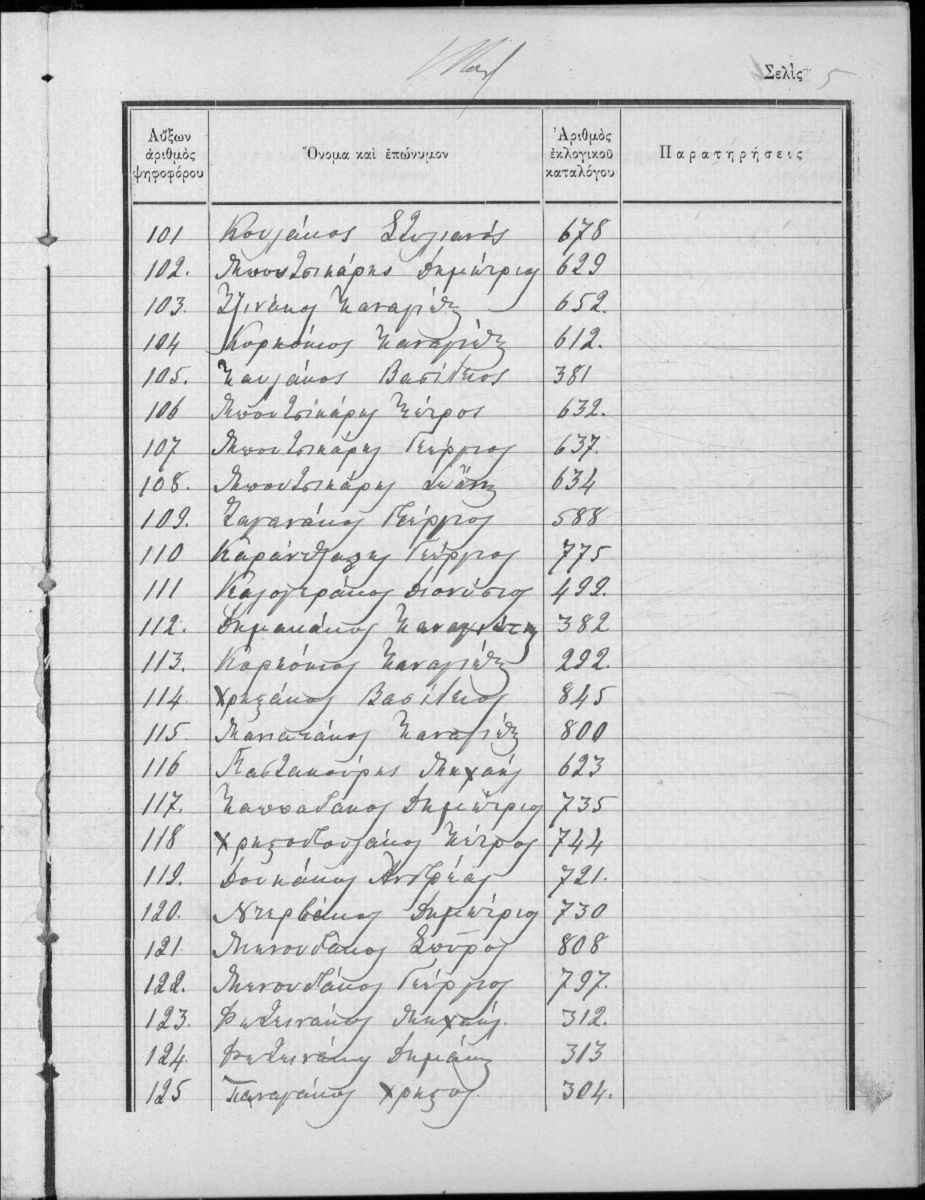 Σελὶς 5
Αὔξων ἀριθμὸς ψηφοφόρου Ὄνομα καὶ ἐπώνυμον Ἀριθμὸς ἐκλογικοῦ καταλόγου Παρατηρήσεις
101 Κουλάκος Στυλιανός 678
102. Μπουτσικάρης Δημήτριος 629
103. Παναγιώτης 652.
104 Καρκόνιος Παναγιώτης 612.
105. Παυλάκος Βασίλειος 381
106 Μπουτσικάρης Πέτρος 632.
107 Μπουτσικάρης Γεώργιος 637.
108. Μπουτσικάρης 634
109. Γεώργιος 588
110 Γεώργιος 775
111 Καλογεράκος Διονύσιος 492.
112. Δημακάκος Παναγιώτης 382
113. Καρκόνιος Παναγιώτης 292.
114 Χρηστάκος Βασίλειος 845
115. Μανιατάκος Παναγιώτης 800
116 Μιχαήλ 623
117. Παππαδάκος Δημήτριος 735
118 Χρηστοδουλάκος Πέτρος 744
119. Δουκάκος Ἀνδρέας 721.
120. Ντερβάκος Δημήτριος 730
121. Μηνουδάκος Σπύρος 808
122. Μενουδάκος Γεώργιος 797.
123. Φετεινάκος Μιχαήλ. 312.
124. Φετεινάκος 313
125 Παναγάκος Χρῆστος 304.